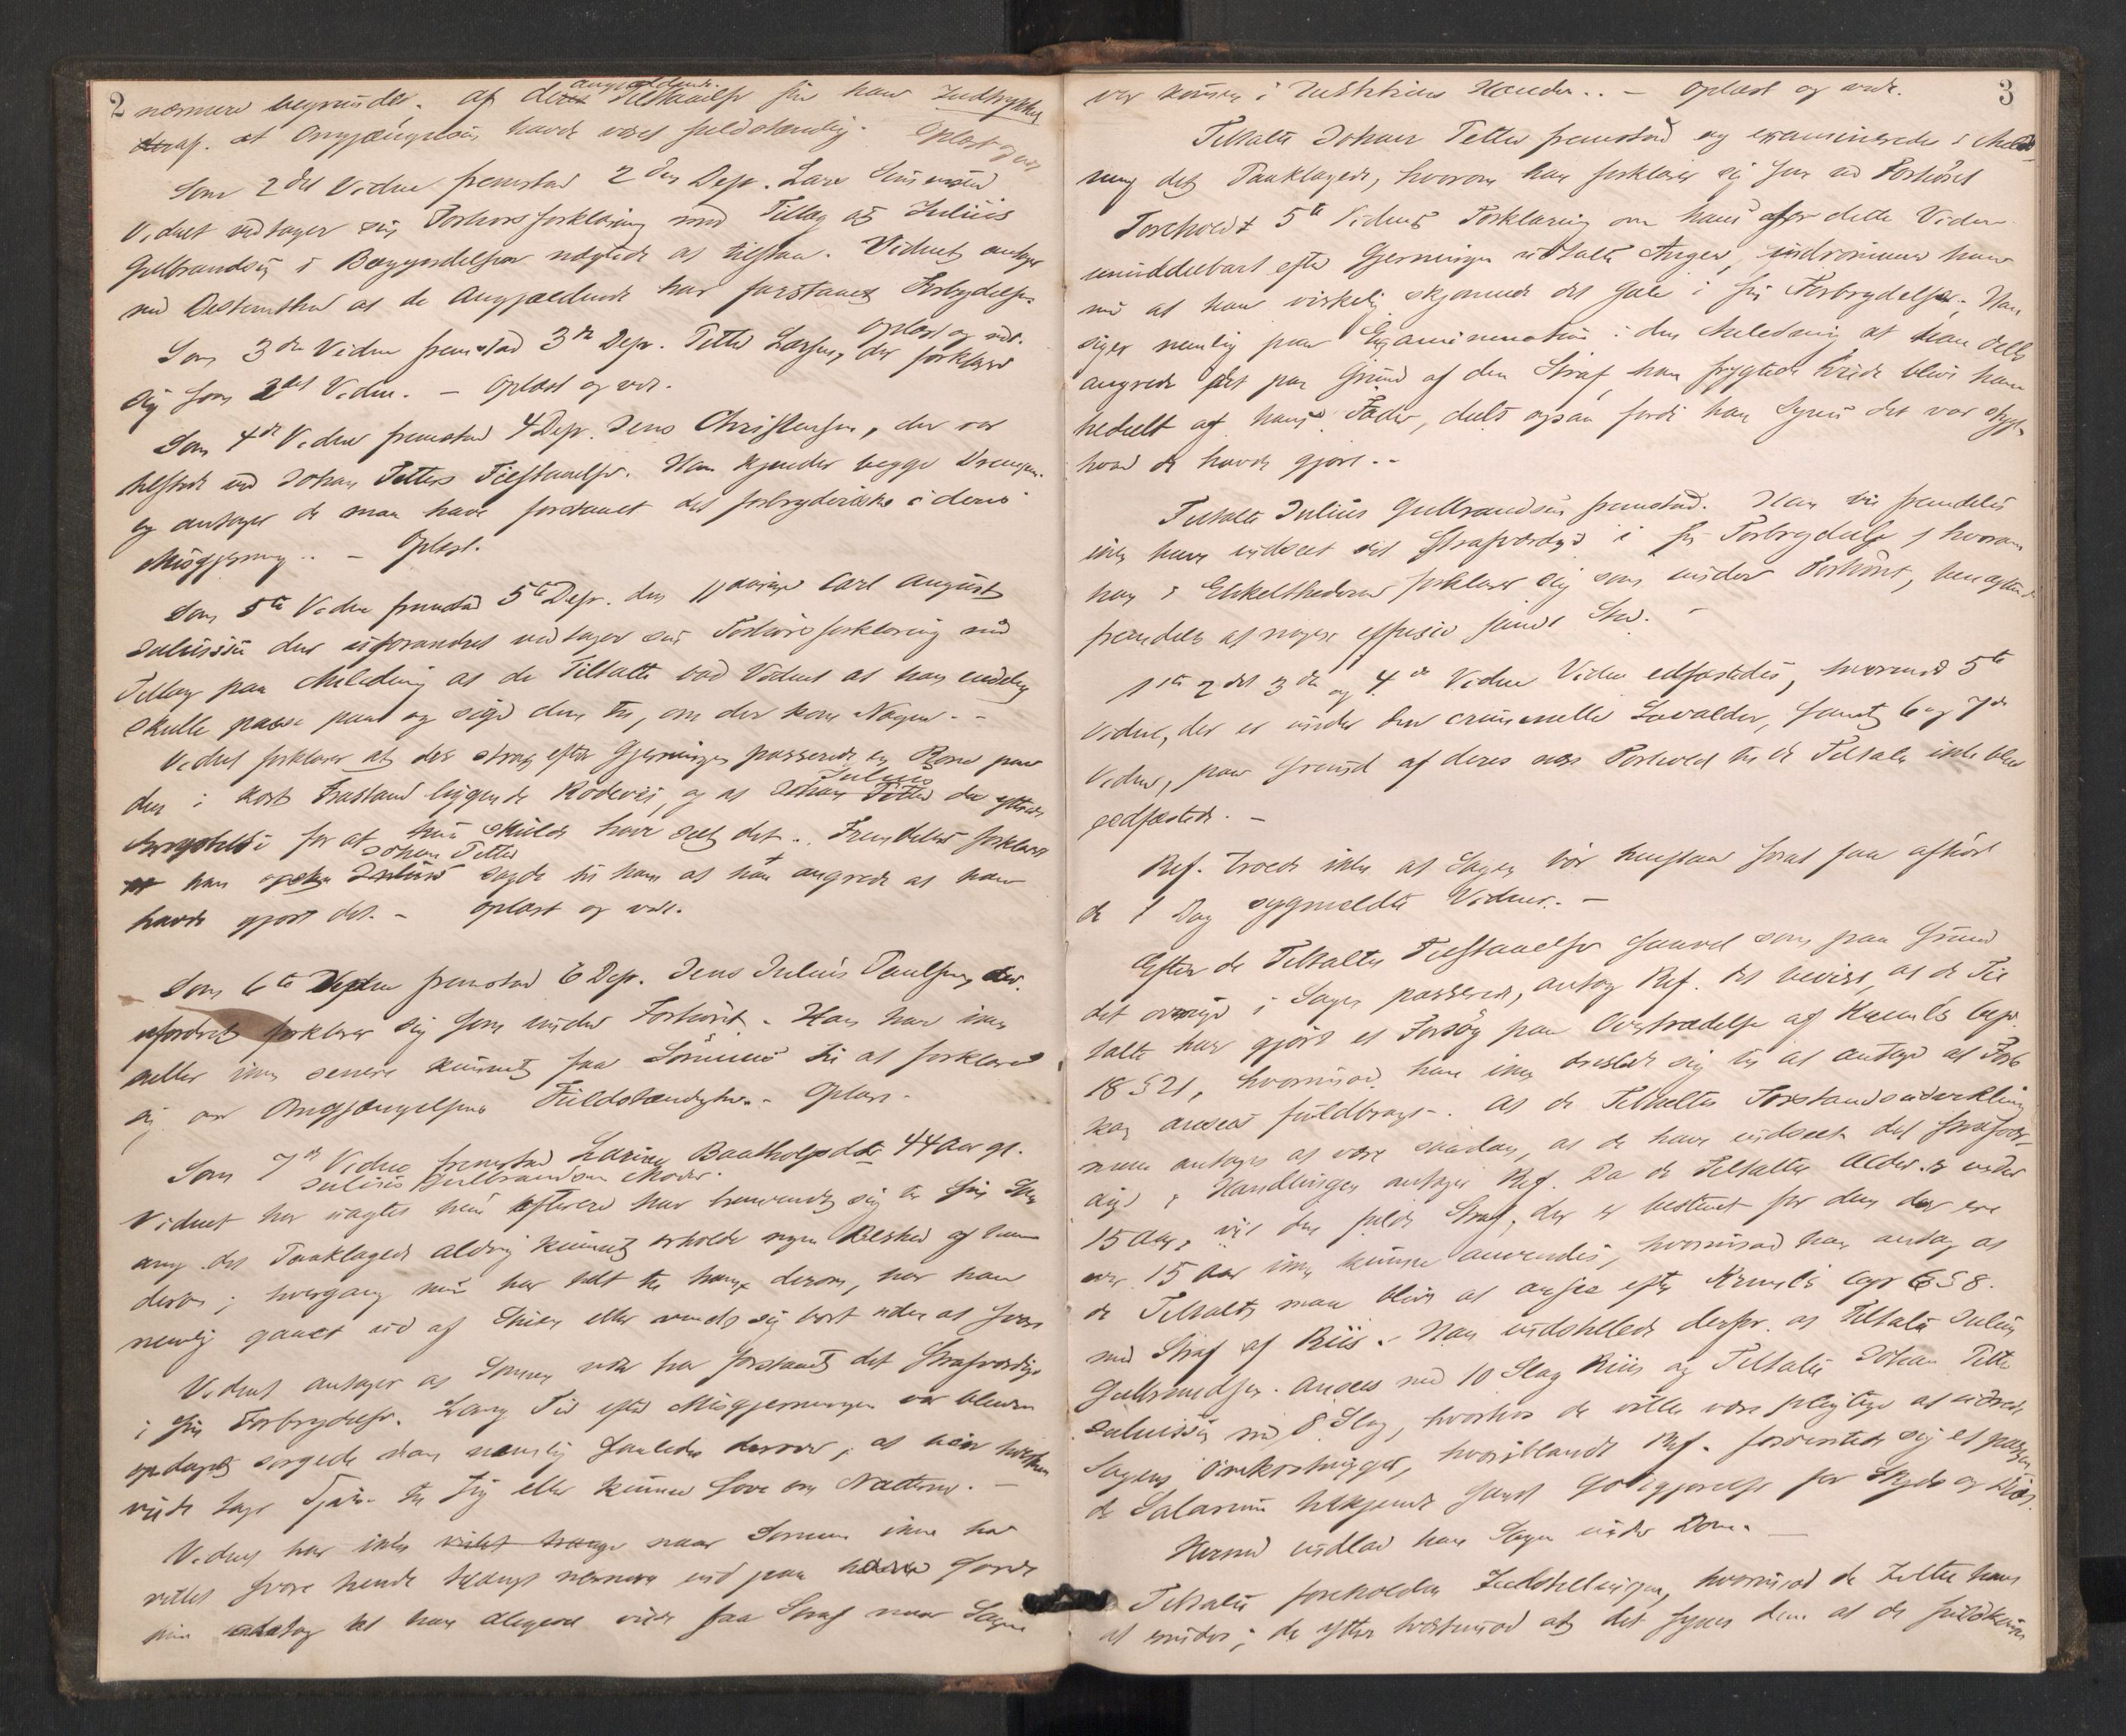 2
nærmere begrundet. af deres Tilstaaelse fik han Indtrykket
angjældendes
af. at Omgjængelsen havde været fuldstændig. Oplæst og vedt.
Som 2det Vidne fremstod 2den Dep. Lars
Vidnet vedtager sin Forhørsforklaring med Tillæg at Julius
Gulbrandsen i Begyndelsen nægtede at tilstaa. Vidnet antager
med Bestemthed at de Angjældende har forstaaet Forbrydelsen
Oplæst og vedt.
Som 3die Vidne fremstod 3die Dep. Petter Larsen, der forklarer
sig som 2det Vidne. – Oplæst og vedt.
Som 4de Vidne fremstod 4 Dep. Jens Christensen, der var
tilstede ved Johan Petters Tilstaaelse. Han kjender begge Drengene
og antager de maa have forstaaet det forbryderiske i deres
Misgjerning. – Oplæst.
Som 5te Vidne fremstod 5te Dep. den 11 aarige Carl August
Juliussen der uforandret vedtager sin Forhørsforklaring med
Tillæg paa Anledning at de Tiltalte bad Vidnet at han endelig
skulle passe paa og sige dem til, om der kom Nogen. –
Vidnet forklarer at der strax efter Gjerningen passerede en Kone paa
den i kort Frastand liggende Rodevei, og at Johan Petter da yttrede
Julius
for at hun skulde have seet det. Fremdeles forklarer
Johan Petter
at han Julius sagde til ham at han angrede at han
havde gjort det. – Oplæst og vedt.
Som 6te Vidne fremstod 6 Dep. Jens Julius Paulsen, der
uforandret forklarer sig som under Forhøret. – Han har ikke
heller ikke senere kunnet faa Sønnen til at forklare
sig om Omgjængelsens Fuldstændighed. – Oplæst –
Som 7de Vidne fremstod Larine Baatholpsdtr 44 Aar gl.
Julius Gulbrandsens Moder.
Vidnet har uagtet hun oftere har henvendt sig til sin Søn
ang. det Paaklagede aldrig kunnet erholde nogen Besked af ham
derom; hvergang hun har talt til ham derom, har han
nemlig gaaet ud af Stuen eller vendt sig bort uden at svare
Vidnet antager at Sønnen nok har forstaaet det Strafværdige
i sin Forbrydelse. Lang Tid efter Misgjerningen var bleven
opdaget sørgede han nemlig saaledes derover, at han hverken
vilde tage Føde til sig eller kunne sove om Natten. –
Vidnet har ikke villet tvinge naar Sønnen ikke har
villet svare hende trængt nærmere ind paa ham fordi
hun antog at han alligevel vilde faa Straf naar Sagen
3
var kommen i Justitiens Hænder. – Oplæst og vedt.
Tiltalte Johan Petter fremstod og examineredes i Anled-
ning det Paaklagede, hvorom han forklarer sig som ved Forhøret
Foreholdt 5te Vidnes Forklaring om hans for dette Vidne
umiddelbart efter Gjerningen udtalte Anger, indrømmer han
nu at han virkelig skjønnede det Gale i sin Forbrydelse. Han
siger nemlig paa Examination i den Anledning at han dels
angrede det paa Grund af den Straf, han frygtede vilde blive ham
tildelt af hans Fader, dels ogsaa fordi han synes det var stygt
hvad de havde gjort. –
Tiltalte Julius Gulbrandsen fremstod. Han vil fremdeles
ikke have indseet det Strafværdige i sin Forbrydelse, hvorom
han i Enkelthederne forklarer sig som under Forhøret, benægtende
fremdeles at nogen effusio seminis Sted. –
1ste 2det 3die og 4de Vidne edfæstedes, hvorimod 5te
Vidne, der er under den criminelle Lavalder, samt 6 og 7de
Vidne, paa Grund af deres nære Forhold til de Tiltalte ikke blev
edfæstede. –
Ref. troede ikke at Sagen bør henstaa forat faa afhørt
de i Dag sygmeldte Vidner. –
Efter de Tiltaltes Tilstaaelse saavel som paa Grund
det øvrige i Sagen passerede, antog Ref. det bevist, at de Til-
talte har gjort et Forsøg paa Overtrædelse af Kriml's Cap.
18 § 21, hvorimod han ikke dristede sig til at antage at Forb.
kan ansees fuldbragt. – At de Tiltaltes Forstandsudvikling
maa antages at være saadan, at de have indseet det Strafvær-
dige i Handlingen antager Ref. Da de Tiltaltes Alder er under
15 Aar, vil den fulde Straf, der er bestemt for dem der ere
over 15 Aar ikke kunne anvendes, hvorimod han antog at
de Tiltalte maa blive at ansee efter Kriml's Cap 6 § 8.
med Straf af Riis. – Han indstillede derfor at Tiltalte Julius
Gulbrandsen ansees med 10 Slag Riis og Tiltalte Johan Petter
Juliussen med 8 Slag, hvorhos de ville være pligtige at udrede
Sagens Omkostninger, hvoriblandt Ref. forventede sig et passen-
de Salarium tilkjendt samt Godtgjørelse for Skyds og Diæt.
Hermed indlod han Sagen under Dom. –
Tiltalte foreholdtes Indstillingen, hvorimod de Intet have
at erindre; de yttrer hvorimod at det synes dem at de